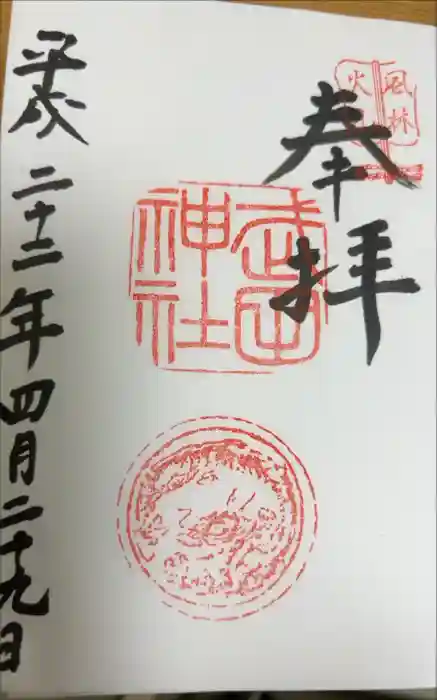 風林
火
奉拝
武田
神社
平成二十二年四月二十九日